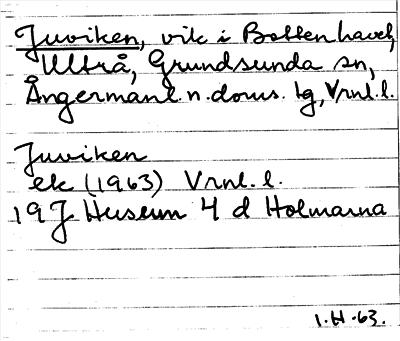 Juviken, vik i Bottenhavet,
Ultrå, Grundsunda sn,
Ångermanl. n. doms. lg, Vrnl. l.
Juviken
ek (1963) Vrnl. l.
19J Husum 4 d Holmarna
1.H.63.